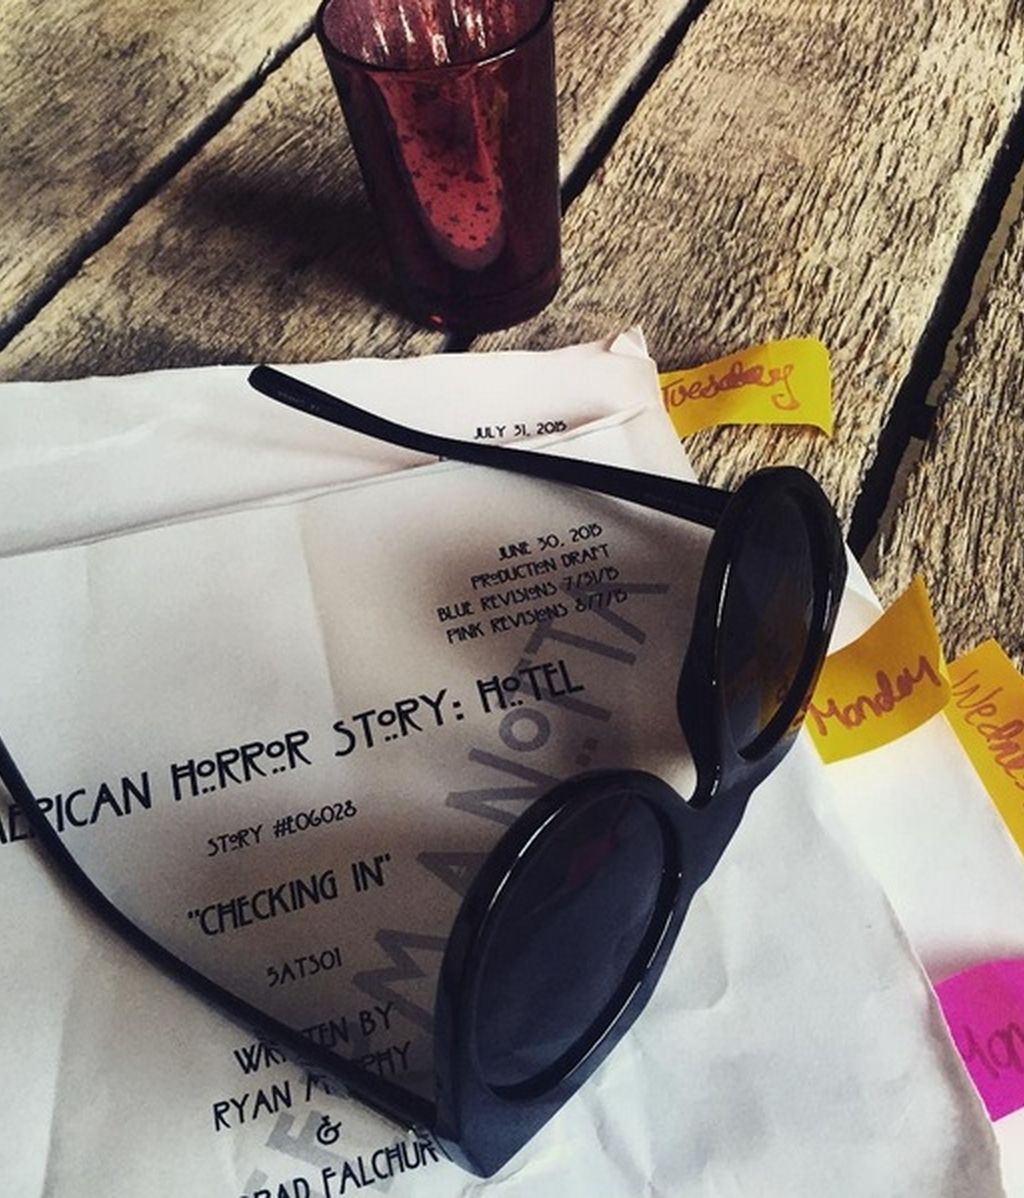 Tuesday
JULY 31, 2015
JUNE 30, 2015
PRODUCTION DRAFT
BLUE REVISIONS 7/31/15
PINK REVISIONS 8/7/15
Monday
Wednes
MERICAN HORROR STORY: HOTEL
STORY #E06028
"CHECKING IN"
5ATS01
WRITTEN BY
RYAN MURPHY
&
BRAD FALCHUK
Mon